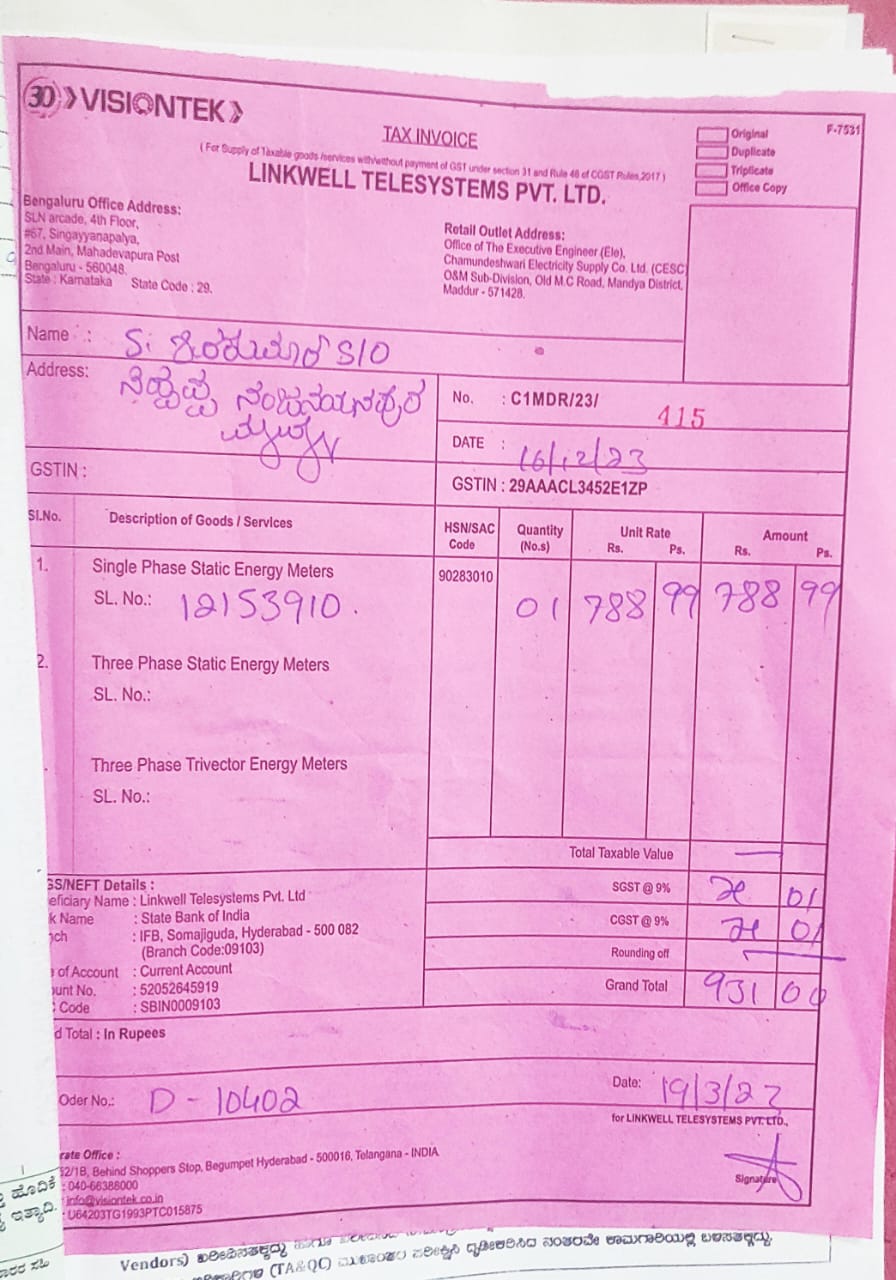 30 VISIONTEK
TAX INVOICE
( For Supply of Taxable goods /services with/without payment of GST under section 31 and Rule 46 of CGST Rules,2017 )
LINKWELL TELESYSTEMS PVT. LTD.
Original
Duplicate
Triplicate
Office Copy
F-7531
Bengaluru Office Address:
SLN arcade, 4th Floor,
#67, Singayyanapalya,
2nd Main, Mahadevapura Post
Bengaluru - 560048.
State : Karnataka State Code : 29.
Retail Outlet Address:
Office of The Executive Engineer (Ele),
Chamundeshwari Electricity Supply Co. Ltd. (CESC
O&M Sub-Division, Old M.C Road, Mandya District,
Maddur - 571428.
Name : S/O
Address:
No. : C1MDR/23/ 415
DATE : 16/12/23
GSTIN :
GSTIN : 29AAACL3452E1ZP
Sl.No. Description of Goods / Services HSN/SAC Code Quantity (No.s) Unit Rate Rs. Ps. Amount Rs. Ps.
1. Single Phase Static Energy Meters 90283010
SL. No.: 12153910. 01 788 99 788 99
2. Three Phase Static Energy Meters
SL. No.:
Three Phase Trivector Energy Meters
SL. No.:
Total Taxable Value —
SGST @ 9% 71 01
CGST @ 9% 71 01
Rounding off —
Grand Total 931 00
GS/NEFT Details :
eficiary Name : Linkwell Telesystems Pvt. Ltd
k Name : State Bank of India
ch : IFB, Somajiguda, Hyderabad - 500 082
(Branch Code:09103)
of Account : Current Account
unt No. : 52052645919
Code : SBIN0009103
d Total : In Rupees
Oder No.: D - 10402
Date: 19/3/23
for LINKWELL TELESYSTEMS PVT. LTD.,
Signature
rate Office :
62/1B, Behind Shoppers Stop, Begumpet Hyderabad - 500016, Telangana - INDIA
: 040-66388000
: info@visiontek.co.in
: U64203TG1993PTC015875
ಹೊದಿಕೆ
ಇತ್ಯಾದಿ.
Vendors) ಖರೀದಿಸತಕ್ಕದ್ದು
(TA&QC) ಮುಖಾಂತರ ಪರೀಕ್ಷಿಸಿ ದೃಢೀಕರಿಸಿದ ನಂತರವೇ ಕಾಮಗಾರಿಯಲ್ಲಿ ಬಳಸತಕ್ಕದ್ದು.